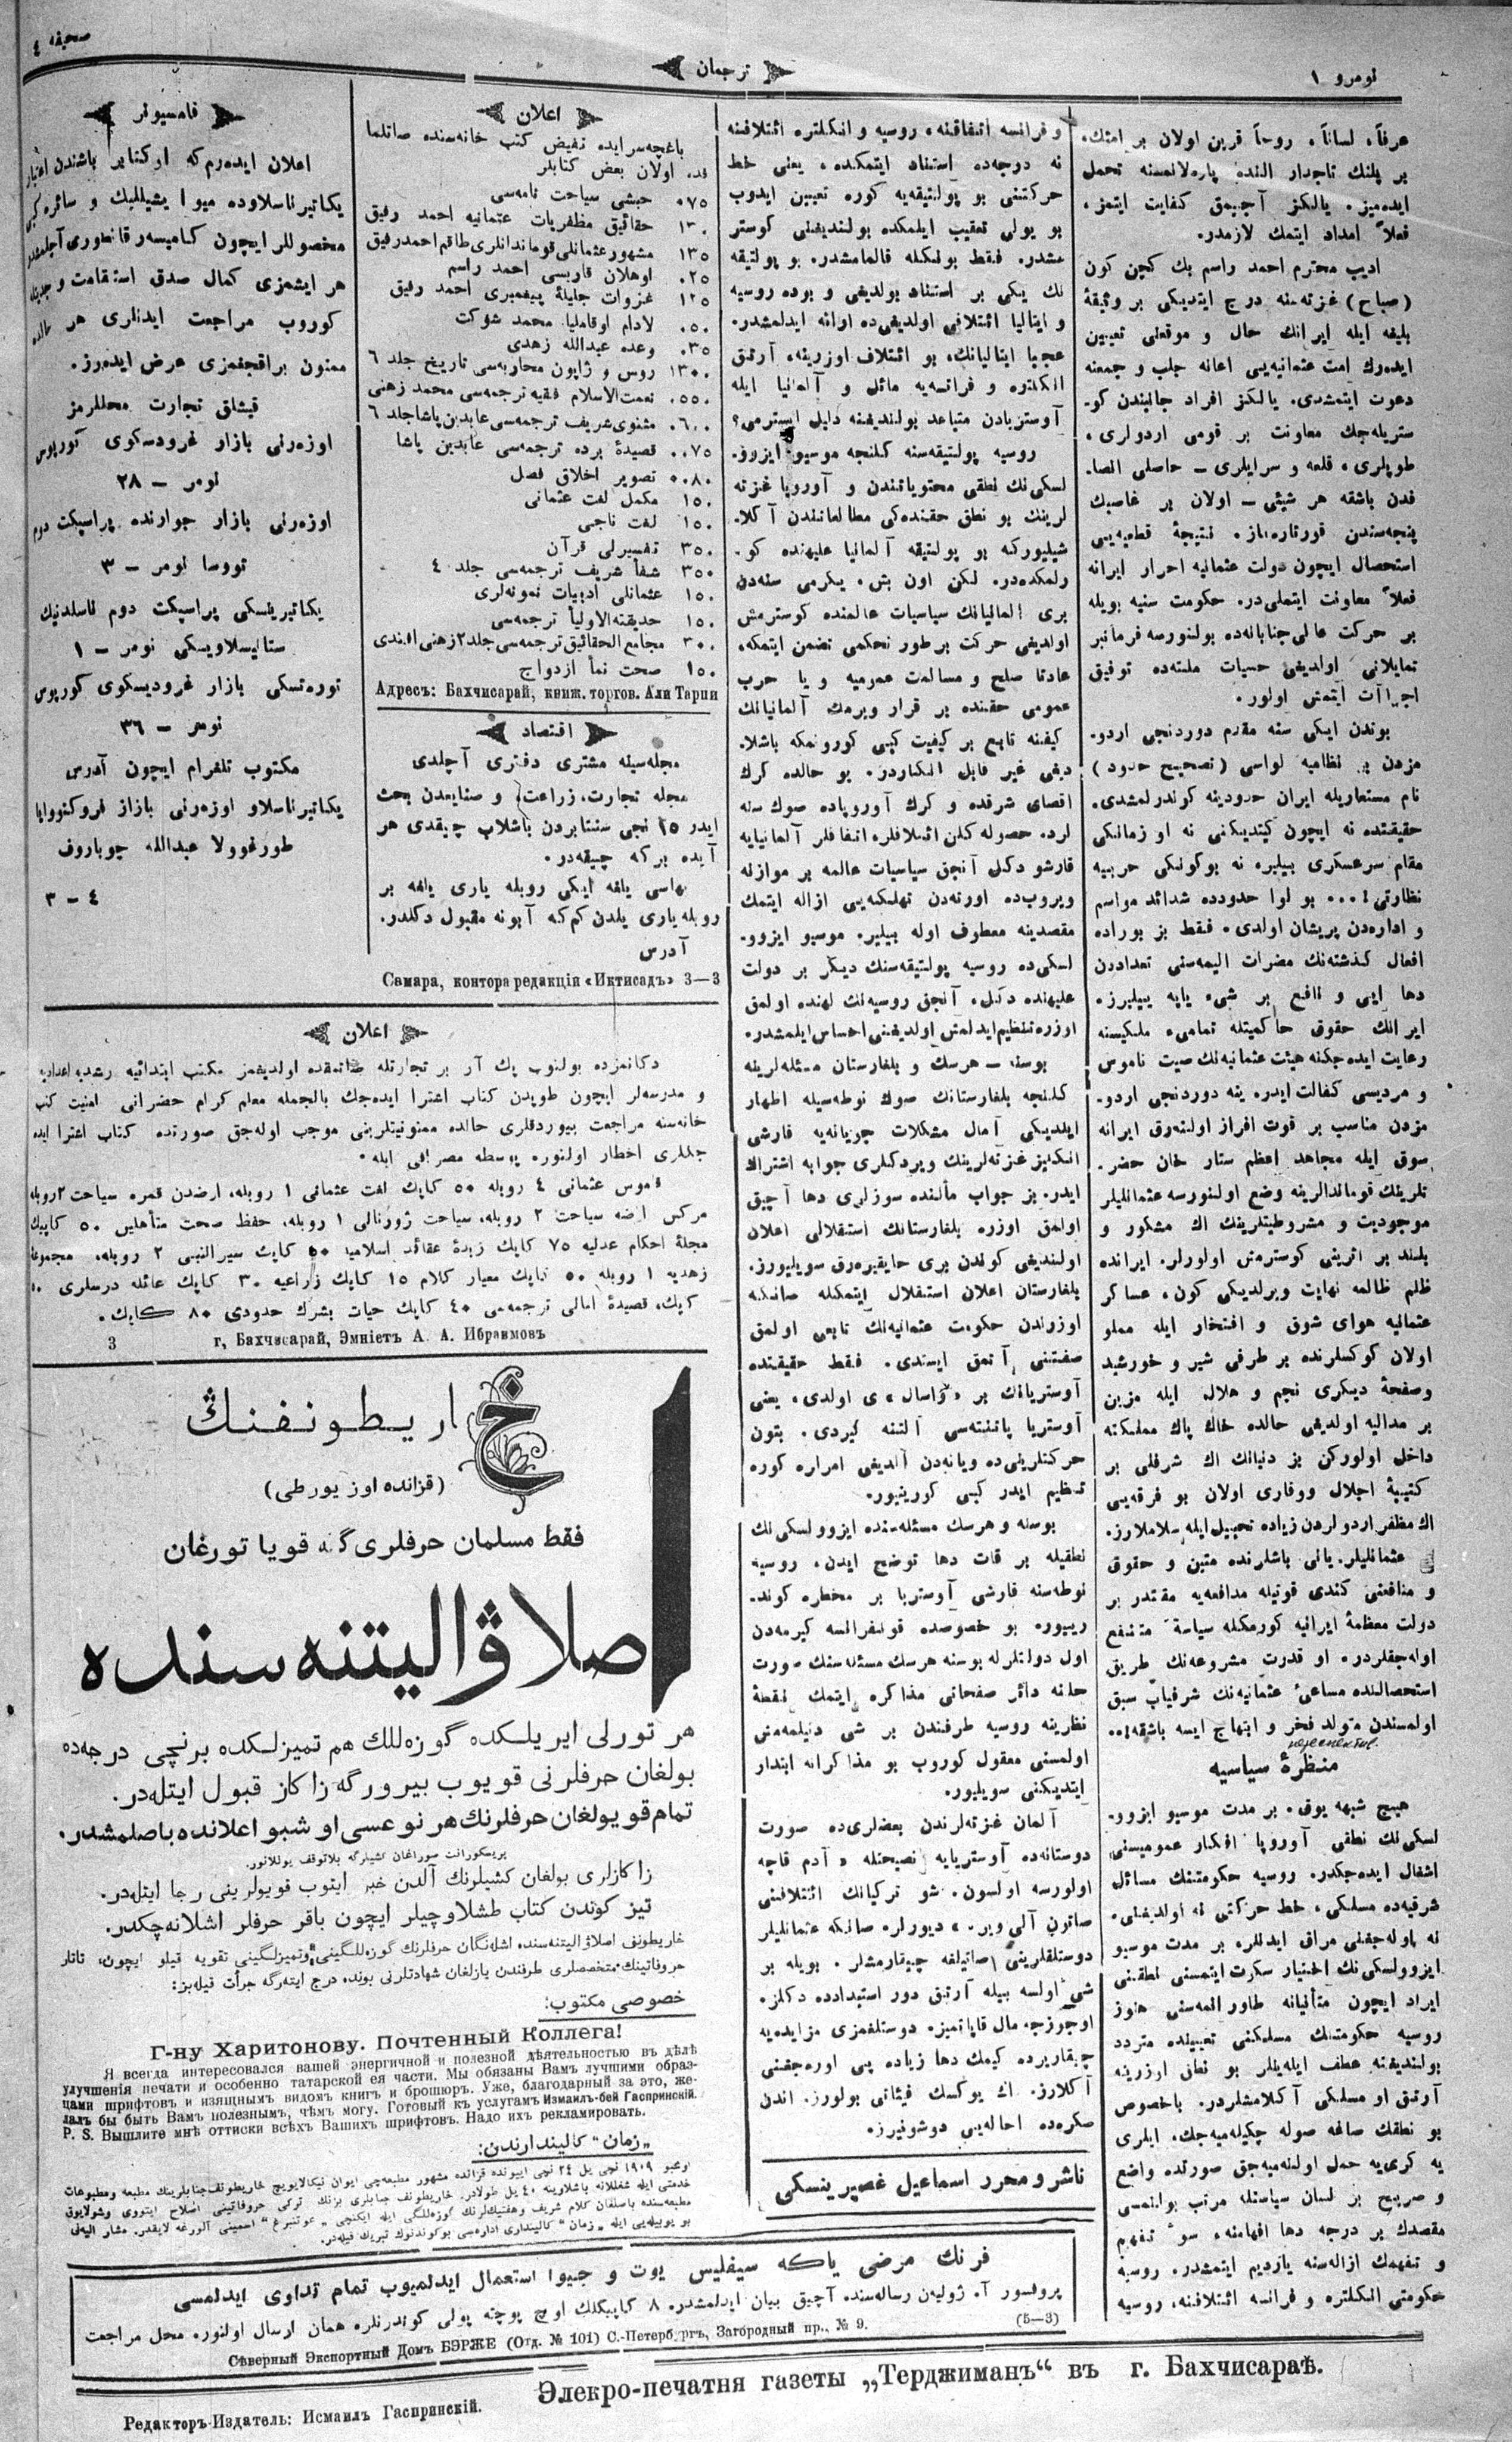 نومرو ١
ترجمان
صحیفه ٤
عرفاً، لساناً، روحاً قرین اولان بر امتك،
بر یلنك تاجدار النده پاره‌لانمسنه تحمل
ایده‌میز. یالكز آجیمق كفایت ایتمز،
فعلاً امداد ایتمك لازمدر.
ادیب محترم احمد راسم بك كچن كون
(صباح) غزته‌سنه درج ایتدیكی بر وثیقهٔ
بلیغه ایله ایرانك حال و موقعنی تعیین
ایده‌رك امت عثمانیه‌یی اعانه جلب و جمعنه
دعوت ایتمشدی. یالكز افراد جانبندن كو-
ستریله‌جك معاونت بر قومی اردولری،
طوپلری، قلعه و سرایلری — حاصلی الصا-
قدن باشقه هر شیئی — اولان بر غاصبك
پنجه‌سندن قورتاره‌ماز. نتیجهٔ قطعیه‌یی
استحصال ایچون دولت عثمانیه احرار ایرانه
فعلاً معاونت ایتملی‌در. حكومت سنیه بویله
بر حركت عالی‌جنابانه‌ده بولنورسه فرمانبر
تمایلاتی اولدیغی حسیات ملته‌ده توفیق
اجراآت ایتمش اولور.
بوندن ایكی سنه مقدم دوردنجی اردو-
مزدن بر نظامیه لواسی (تصحیح حدود)
نام مستعاریله ایران حدودینه كوندرلمشدی.
حقیقتده نه ایچون كیتدیكنی نه او زمانكی
مقام سرعسكری بیلیره نه بوكونكی حربیه
نظارتی!... بو لوا حدودده شدائد مواسم
و اداره‌دن پریشان اولدی. فقط بز بوراده
افعال گذشته‌نك مضرات الیمه‌سنی تعداددن
دها ایی و نافع بر شیء یاپه بیلیرز.
ایرانك حقوق حاكمیتله تمامیء ملكیسنه
رعایت ایده‌جكنه هیئت عثمانیه‌نك صیت ناموس
و مردیسی كفالت ایدر. ینه دوردنجی اردو-
مزدن مناسب بر قوت افراز اولنه‌رق ایرانه
سوق ایله مجاهد اعظم ستار خان حضر-
تلرینك قوماندالرینه وضع اولنورسه عثمانلیلر
موجودیت و مشروطیتلرینك اك مشكور و
بلند بر اثرینی كوسترمش اولورلر. ایرانده
ظلم ظالمه نهایت ویرلدیكی كون، عساكر
عثمانیه هوای شوق و افتخار ایله مملو
اولان كوكسلرنده بر طرفی شیر و خورشید
وصفحهٔ دیكری نجم و هلال ایله مزین
بر مدالیه اولدیغی حالده خاك پاك مملكته
داخل اولوركن بز دنیانك اك شرفلی بر
كتیبهٔ اجلال ووقاری اولان بو فرقه‌یی
اك مظفر اردولردن زیاده تجیل ایله سلاملارز.
عثمانلیلر. یانی باشلرنده متین و حقوق
و منافعنی كندی قوتیله مدافعه‌یه مقتدر بر
دولت معظمهٔ ایرانیه كورمكله سیاسة متنفع
اوله‌جقلردر. او قدرت مشروعه‌نك طریق
استحصالنده مساعئ عثمانیه‌نك شرفیاب سبق
اولمسندن متولد فخر و ابتهاج ایسه باشقه!..
منظرهٔ سیاسیه
هیچ شبهه یوق. بر مدت موسیو ایزوو-
لسكی‌نك نطقی آوروپا افكار عمومیسنی
اشغال ایده‌جكدر. روسیه حكومتنك مسائل
شرقیه‌ده مسلكی، خط حركتی نه اولدیغنی.
نه اوله‌جغنی مراق ایدنلر، بر مدت موسیو
ایزوولسكی‌نك اختیار سكوت ایتمسنی نطقنی
ایراد ایچون متأنیانه طاورانمه‌سنی هنوز
روسیه حكومتنك مسلكنی تعیینده متردد
بولندیغنه عطف ایله‌یلر بو نطق اوزرینه
آرتق او مسلكی آكلامشلردر. باخصوص
بو نطقك صاغه صوله چكیله‌میه‌جك، ایلری
یه كری‌یه حمل اولنه‌میه‌جق صورتده واضح
و صریح بر لسان سیاستله مرتب بولنمسی
مقصدك بر درجه دها افهامنه، سوٴ تفهم
و تفهمك ازاله‌سنه یاردیم ایتمشدر. روسیه
حكومتی انكلتره و فرانسه ائتلافنه، روسیه
و فرانسه اتفاقنه، روسیه و انكلتره ائتلافنه
نه درجه‌ده استناد ایتمكده، یعنی خط
حركتنی بو پولتیقه‌یه كوره تعیین ایدوب
بو یولی تعقیب ایلمكده بولندیغنی كوستر
مشدر. فقط بونكله قالمامشدر. بو پولتیقه
نك یكی بر استناد بولدیغی و بوده روسیه
و ایتالیا ائتلافی اولدیغی‌ده اوانه ایدلمشدر.
عجبا ایتالیانك، بو ائتلاف اوزرینه، آرتق
انكلتره و فرانسه‌یه مائل و آلمانیا ایله
آوستریادن متباعد بولندیغنه دلیل ایسترمی؟
روسیه پولتیقه‌سنه كلنجه موسیو ایزوو-
لسكی‌نك نطقی محتویاتندن و آوروپا غزته
لرینك بو نطق حقنده‌كی مطالعاتندن آكلا-
شیلیوركه بو پولتیقه آلمانیا علیهنده كو-
رلمكده‌در. لكن اون بش، یكرمی سنه‌دن
بری آلمانیانك سیاسیات عالمنده كوسترمش
اولدیغی حركت بر طور تحكمی تضمن ایتمكه،
عادتا صلح و مسالمت عمومیه و یا حرب
عمومی حقنده بر قرار ویرمك آلمانیانك
كیفنه تابع بر كیفیت كبی كورونمكه باشلا-
دیغی غیر قابل انكاردر. بو حالده كرك
اقصای شرقده و كرك آوروپاده صوك سنه
لرده حصوله كلن ائتلافلره اتفاقلر آلمانیایه
قارشو دكل آنجق سیاسیات عالمه بر موازنه
ویروب‌ده اورته‌دن تهلكه‌یی ازاله ایتمك
مقصدینه معطوف اوله بیلیر. موسیو ایزوو-
لسكی‌ده روسیه پولتیقه‌سنك دیكر بر دولت
علیهنده دكل، آنجق روسیه‌نك لهنده اولمق
اوزره تنظیم ایدلمش اولدیغنی احساس ایلمشدر.
بوسنه — هرسك و بلغارستان مسئله‌لرینه
كلنجه بلغارستانك صوك نوطه‌سیله اظهار
ایلدیكی آمال مشكلات جویانه‌یه قارشی
انكلیز غزته‌لرینك ویردكلری جوابه اشتراك
ایدر. بز جواب مآلنده سوزلری دها آچیق
اولمق اوزره بلغارستانك استقلالی اعلان
اولندیغی كوندن بری حایقیره‌رق سویلیورز.
بلغارستان اعلان استقلال ایتمكله صانكه
اوزرندن حكومت عثمانیه‌نك تابعی اولمق
صفتنی آتمق ایستدی. فقط حقیقتده
آوستریانك بر «واسال» ی اولدی، یعنی
آوستریا پاتنته‌سی آلتنه كیردی. بتون
حركتلرینی‌ده ویانه‌دن آلدیغی امراره كوره
تنظیم ایدر كبی كورینیور.
بوسنه و هرسك مسئله‌سنده ایزوولسكی‌نك
نطقیله بر قات دها توضح ایدن، روسیه
نوطه‌سنه قارشی آوستریا بر مخطره كوند-
ریبوره بو خصوصده قونفرانسه كیرمه‌دن
اول دولتلرله بوسنه هرسك مسئله‌سنك صورت
حلنه دائر صفحاتی مذاكره ایتمك نقطهٔ
نظرینه روسیه طرفندن بر شی دنیلمه‌مش
اولمسنی معقول كوروب بو مذاكراته ابتدار
ایتدیكنی سویلیور.
آلمان غزته‌لرندن بعضلری‌ده صورت
دوستانه‌ده آوستریایه نصیحتله «آدم قاچه
اولورسه اولسون. شو تركیانك ائتلافنی
صاتون آلی ویر.» دیورلر. صانكه عثمانلیلر
دوستلقلرینی صاتیلغه چیقارمشلر. بویله بر
شیٴ اولسه بیله آرتق دور استبدادده دكلز.
اوجوزجه مال قاپاتمیز. دوستلغمزی مزایده‌یه
چیقاریرده كیمك دها زیاده پی اوره‌جغنی
آكلارز. اك یوكسك فیئاتی بولورز. اندن
صكره‌ده احاله‌یی دوشونیرز.
ناشر و محرر اسماعیل غصپرینسكی
اعلان
باغچه‌سرایده تفیض كتب خانه‌سنده صاتلما
قده اولان بعض كتابلر
٠٧٥ حبشی سیاحت نامه‌سی
١٣٠ حقائیق مظفریات عثمانیه احمد رفیق
١٣٥ مشهور عثمانلی قوماندانلری طاقم احمد رفیق
٠٢٥ اوهلان قاوریسی احمد راسم
١٢٥ غزوات جلیلهٔ پیغمبری احمد رفیق
٠٥٠ لادام اوقاملیا محمد شوكت
٠٣٥ وعده عبدالله زهدی
١٣٠٠ روس و ژاپون محاربه‌سی تاریخ جلد ٦
٠٥٥٠ نعمت الاسلام فقیه ترجمه‌سی محمد زهنی
٠٦٠٠ مثنوی شریف ترجمه‌سی عابدین پاشا جلد ٦
٠٠٧٥ قصیدهٔ برده ترجمه‌سی عابدین پاشا
٠٠٨٠ تصویر اخلاق فصل
١٥٠ مكمل لغت عثمانی
١٥٠ لغت ناجی
٣٥٠ تفسیرلی قرآن
٣٥٠ شفأ شریف ترجمه‌سی جلد ٤
١٥٠ عثمانلی ادبیات نمونه‌لری
١٥٠ حدیقته الاولیأ ترجمه‌سی
٣٠٠ مجامع الحقائیق ترجمه‌سی جلد ٢ زهنی افندی
١٥٠ صحت نمأ ازدواج
Адресъ: Бахчисарай, книж. торгов. Али Тарпи
اقتصاد
مجله‌سینه مشتری دفتری آچلدی
مجله تجارت، زراعت و صنایعدن بحث
ایدر ١٥ نجی سنتابردن باشلاپ چیقدی هر
آیده بركه چیقه‌در.
بهاسی یلغه ایكی روبله یاری یلغه بر
روبله یاری یلدن كم‌كه آبونه مقبول دكلدر.
آدرس
Самара, контора редакціи «Иктисадъ» 3—3
قامسیونر
اعلان ایده‌رم‌كه اوكتابر باشندن اعتبار
یكاتیرناسلاوده میوا یشیللیك و سائره كبی
محصوللر ایچون كامیسه‌ر قانطوری آچلمشدر
هر ایشمزی كمال صدق استقامت و جدیتله
كوروب مراجعت ایدنلری هر حالده
ممنون براقجغمزی عرض ایده‌رز.
قیشلق تجارت محللرمز
اوزه‌رنی بازار غرودسكوی كورپوس
نومر — ٢٨
اوزه‌رنی بازار جوارنده پراسپكت دوم
تووسا نومر — ٣
یكاتیرینسكی پراسپكت دوم ناسلدنیك
ستانیسلاویسكی نومر — ١
تووره‌تسكی بازار غرودیسكوی كورپوس
نومر — ٣٦
مكتوب تلغرام ایچون آدرس
یكاتیرناسلاو اوزه‌رنی بازار فروكتووایا
طورغوولا عبدالله چوباروف
٤ — ٣
اعلان
دكانمزده بولنوب پك آر بر تجارتله صاتمقده اولدیغمز مكتب ابتدائیه رشدیه اعدادیه
و مدرسه‌لر ایچون طوپدن كتاب اعترا ایده‌جك بالجمله معلم كرام حضراتی امنیت كتب
خانه‌سنه مراجعت بیوردقلری حالده ممنونیتلرینی موجب اوله‌جق صورتده كتاب اعترا ایده
جكلری اخطار اولنور.
قاموس عثمانی ٤ روبله ٥٠ كاپك لغت عثمانی ١ روبله، ارضدن قمره سیاحت ٢ روبله
مركس ارضه سیاحت ٢ روبله، سیاحت ژورنالی ١ روبله، حفظ صحت متأهلین ٥٠ كاپیك
مجلهٔ احكام عدلیه ٧٥ كاپك زبدهٔ عقائد اسلامیه ٥٠ كاپك سیرالنبی ٢ روبله، مجموعهٔ
زهدیه ١ روبله ٥٠ كاپك معیار كلام ١٥ كاپك زراعیه ٣٠ كاپك عائله درسلری ١٠
كپك، قصیدهٔ امالی ترجمه‌سی ٤٠ كاپك حیات بشرك حدودی ٨٠ كاپك.
г, Бахчисарай, Эмніетъ А. А. Ибраимовъ 3
خاریطونفنڭ
(قزانده اوز یورطی)
فقط مسلمان حرفلری گنه قویا تورغان
اصلاوالیتنه‌سنده
هر تورلی ایریلكده گوزه‌للك هم تمیزلكده برنچی درجه‌ده
بولغان حرفلرنی قویوب بیرورگه زاكاز قبول ایتله‌در.
تمام قویولغان حرفلرنك هر نوعسی اوشبو اعلانده باصلمشدر.
پریسكورانت سوراغان كشیلرگه بلاتوقف یوللانور.
زاكازلری بولغان كشیلرنك آلدن خبر ایتوب قویولرینی رجا ایتله‌در.
تیز كوندن كتاب طشلاوچیلر ایچون باقر حرفلر اشلانه‌چكدر.
خاریطونف اصلاوالیتنه‌سنده اشله‌نگان حرفلرنك گوزه‌للگینی وتمیزلگینی تقویه قیلو ایچون، تاتار
حروفاتینك متخصصلری طرفندن یازلغان شهادتلرنی بونده درج ایته‌رگه جرأت قیله‌بز:
خصوصی مكتوب:
Г-ну Харитонову. Почтенный Коллега!
Я всегда интересовался вашей энергичной и полезной дѣятельностью въ дѣлѣ
улучшенія печати и особенно татарской ея части. Мы обязаны Вамъ лучшими образ-
цами шрифтовъ и изящнымъ видомъ книгъ и брошюръ. Уже, благодарный за это, же-
лалъ бы быть Вамъ полезнымъ, чѣмъ могу. Готовый къ услугамъ Измаилъ-бей Гаспринскій.
P. S. Вышлите мнѣ оттиски всѣхъ Вашихъ шрифтовъ. Надо ихъ рекламировать.
„زمان“ كالیندارندن:
اوشبو ١٩٠٩ نچی یل ٢٤ نچی اییونده قزانده مشهور مطبعه‌چی ایوان نیكالایویچ خاریطونف جنابلرینك مطبعه ومطبوعات
خدمتی ایله شغللانه باشلاوینه ٤٠ یل طولادر. خاریطونف جنابلری بزنك تركی حروفاتینی اصلاح ایتووی وشولایوق
مطبعه‌سنده باصلغان كلام شریف وهفتیكلرنك گوزه‌للگی ایله ایكنچی „غوتنبرغ“ اسمینی آلورغه لایقدر. مشار الیه‌نی
بو یوبیله‌یی ایله „زمان“ كالینداری اداره‌سی بوكوندنوك تبریك قیله‌در.
فرنك مرضی یاكه سیفلیس یوت و جیوا استعمال ایدلمیوب تمام تداوی ایدلمسی
پروفسور آ. ژولیه‌ن رساله‌سنده آچیق بیان ایدلمشدر. ٨ كاپیكلك اوچ پوچته پولی كوندرنلره همان ارسال اولنور. محل مراجعت
Сѣверный Экспортный Домъ БЭРЖЕ (Отд. № 101) С.-Петербургъ, Загородный пр., № 9. (5—3)
Элекро-печатня газеты „Терджиманъ“ въ г. Бахчисараѣ.
Редакторъ-Издатель: Исмаилъ Гаспринскій.